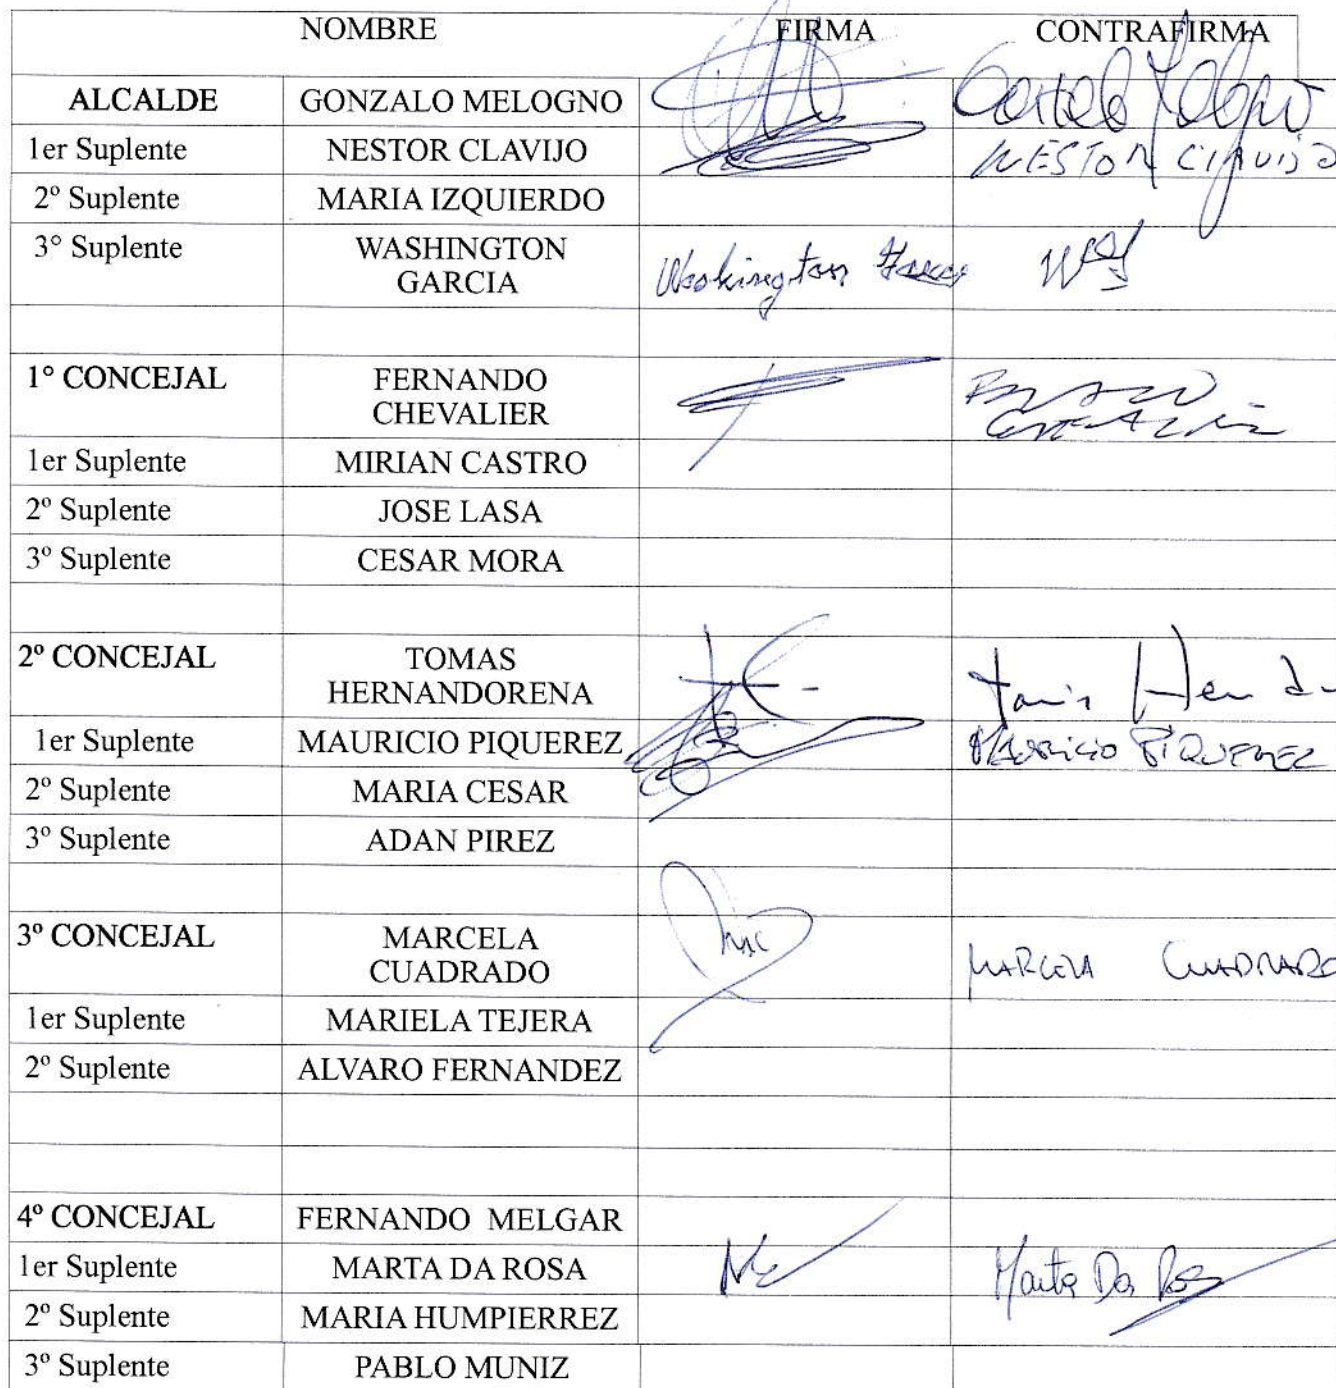 NOMBRE FIRMA CONTRAFIRMA
ALCALDE GONZALO MELOGNO
1er Suplente NESTOR CLAVIJO NESTOR CLAVIJO
2º Suplente MARIA IZQUIERDO
3° Suplente WASHINGTON
GARCIA Washington
1° CONCEJAL FERNANDO
CHEVALIER
1er Suplente MIRIAN CASTRO
2º Suplente JOSE LASA
3º Suplente CESAR MORA
2º CONCEJAL TOMAS
HERNANDORENA
1er Suplente MAURICIO PIQUEREZ MAURICIO PIQUEREZ
2º Suplente MARIA CESAR
3º Suplente ADAN PIREZ
3º CONCEJAL MARCELA
CUADRADO MARCELA CUADRADO
1er Suplente MARIELA TEJERA
2º Suplente ALVARO FERNANDEZ
4º CONCEJAL FERNANDO MELGAR
1er Suplente MARTA DA ROSA Marta Da Rosa
2º Suplente MARIA HUMPIERREZ
3º Suplente PABLO MUNIZ